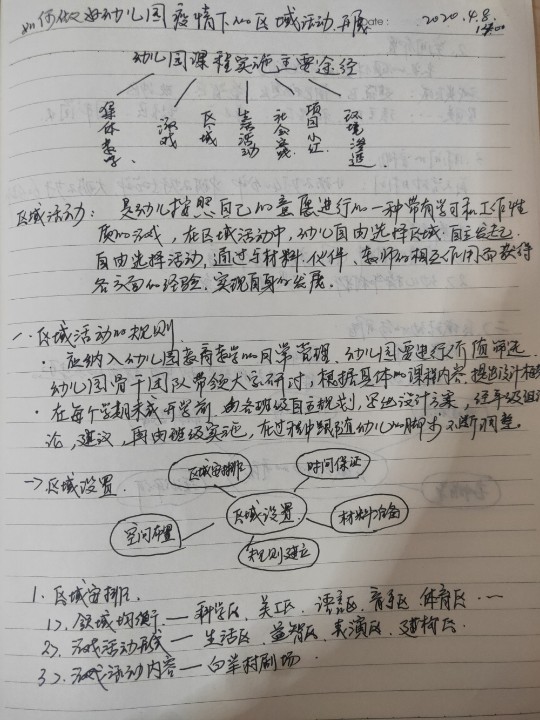 如何做好幼儿园疫情下的区域活动开展 Date: 2020.4.8.
14:00
幼儿园课程实施主要途径
集体教学 游戏 区域 生活活动 社会实践 项目 环境渗透
区域活动: 是幼儿按照自己的意愿进行的一种带有学习和工作性
质的游戏,在区域活动中,幼儿自由选择区域.自主发起.
自由选择活动,通过与材料.伙伴.教师的相互作用而获得
各方面的经验.实现自身的发展.
一.区域活动的规则.
·应纳入幼儿园教育教学的日常管理.幼儿园要进行价值审视
幼儿园骨干团队带领大家研讨,根据具体的课程内容.提出设计
·在每个学期末或开学前.由各班级自主规划,写出设计方案,经年级组讨
论,建议,再由班级实施,在过程中跟随幼儿的脚步不断调整.
一>区域设置.
区域安排 时间保证
区域设置
空间布置 材料准备
规则建立
1.区域安排.
1>.领域均衡——科学区.美工区.语言区.音乐区.体育区.…
2>.游戏活动形式——生活区.益智区.表演区.建构区.
3>.游戏活动内容——白羊村剧场.